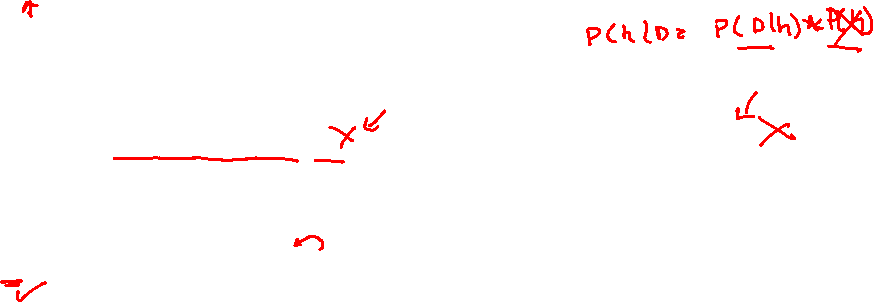 P(h|D= P(D|h)*P(h)